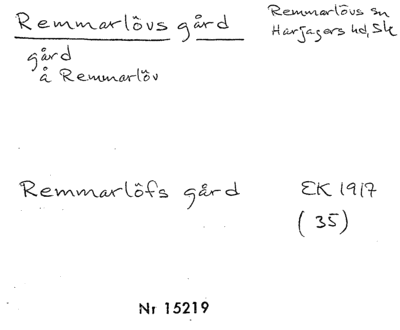 Remmarlövs gård
Remmarlövs sn
Harjagers hd, Sk
gård
å Remmarlöv
Remmarlöfs gård
EK 1917
(35)
Nr 15219